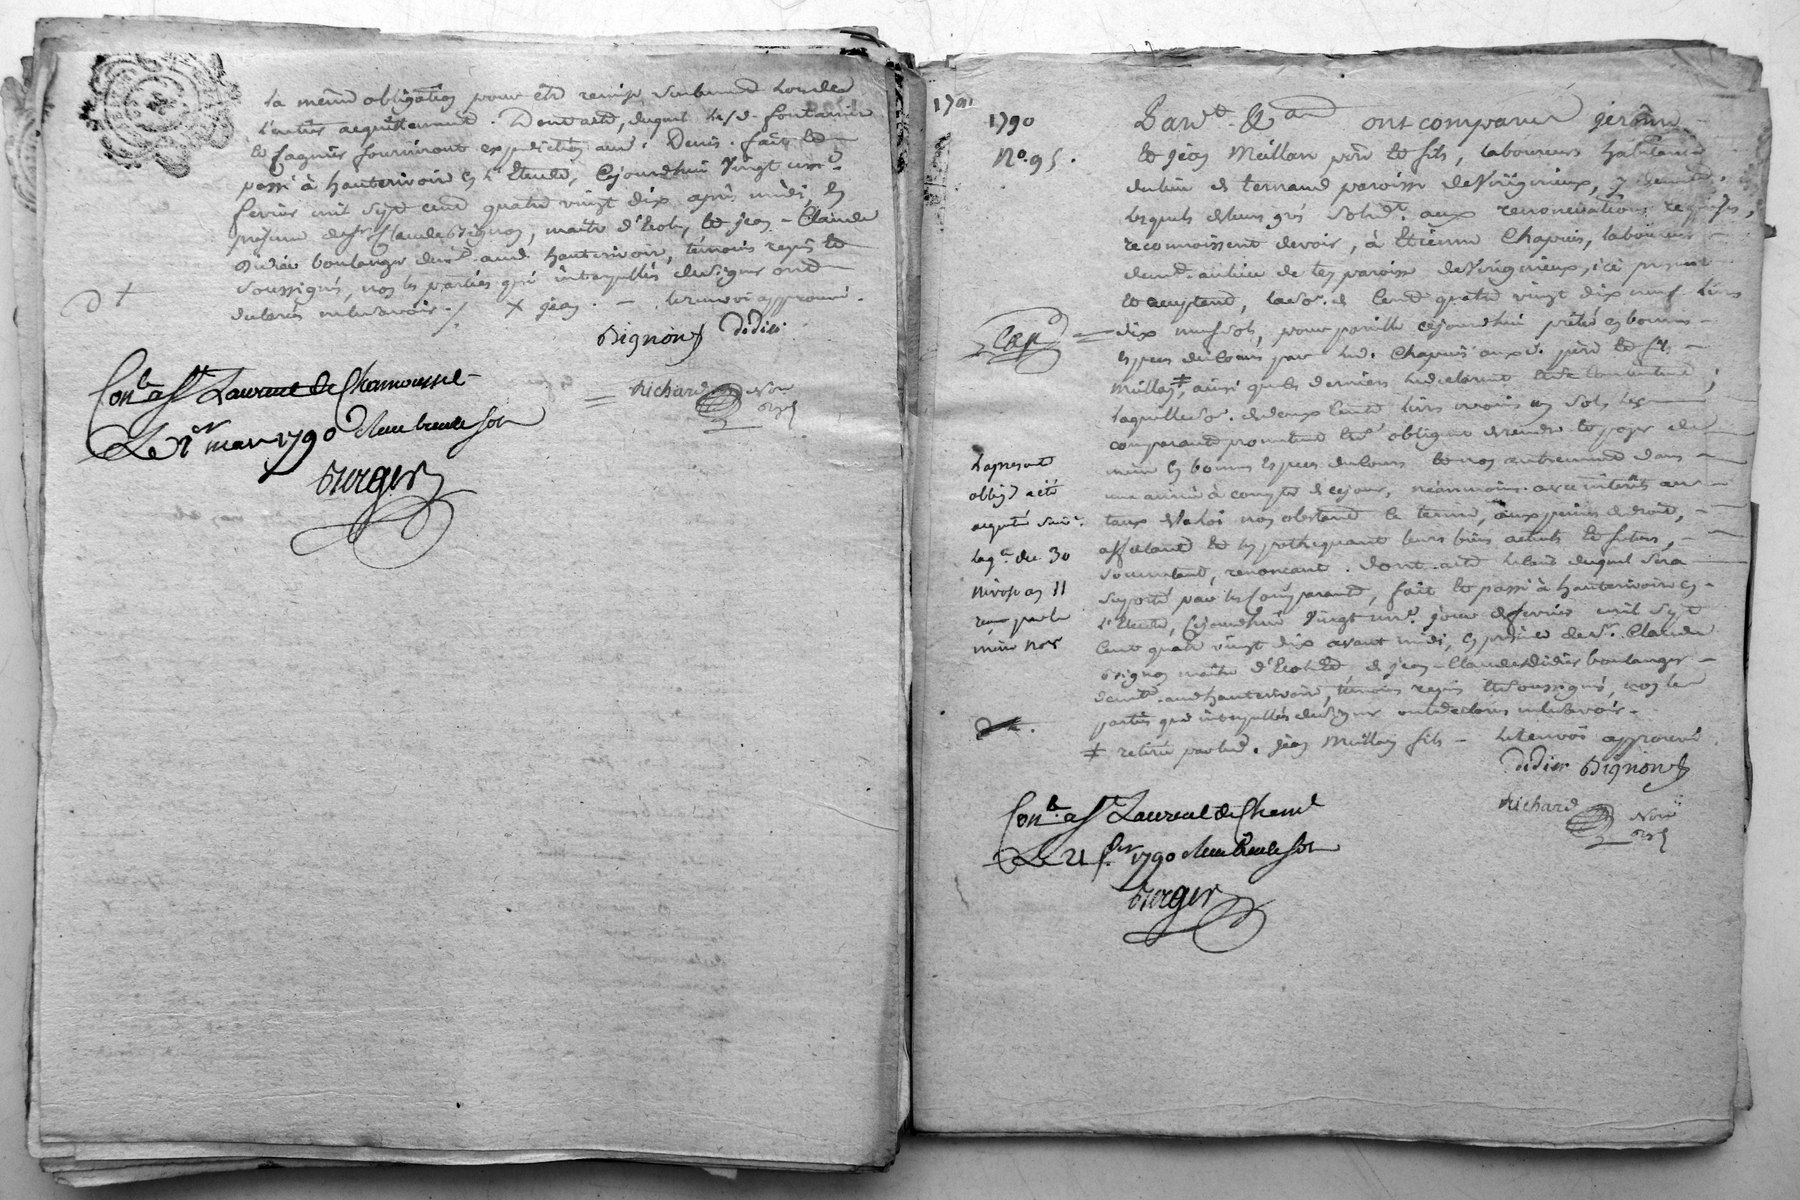 la même obligation pour être remise
l'entier acquittement. Dont acte, duquel les d. fontaine
et fagnier fourniront expedition aud. Denis. fait et
passé à hauterivoire en l'Etude, Cejourdhui vingt un
fevrier mil sept cent quatre vingt dix après midi, en
présence de Sr Claude Bignon, maitre d'Ecole, et jean - Claude
Didier boulanger aud. hauterivoire, témoins requis et
soussignés, non les parties qui interpellés de signer ont
declarés ne le savoir ./. x jean . - le renvoi approuvé.
Bignon Didier
Richard Nore
Conlé a St Laurent de Chamousset
Le 1er mars 1790
Burger
1790
No. 95.
Pardt. &a ont comparus jérôme
et jean Meillan père et fils, laboureurs habitants
du lieu de ternand paroisse de Virigneux,
lesquels de leurs gré solidt. aux renonciations requises,
reconnoissent devoir, à Etienne Chapuis, laboureur
demt. au lieu de paroisse de Virigneux, ici présent
et acceptant, la so. de Cent quatre vingt dix neuf livres
dix neuf sols, pour pareille cejourdhui prêtée en bonnes
especes du cours par led. Chapuis auxd. père et fils
Meillan ‡, ainsi que les derniers le declarent
laquelle so. de deux cents livres moins un sols les
comparants promettent et s'obligent de rendre et payer de
même en bonnes Especes du cours et non autrement dans
une année à compter de cejour, néanmoins avec intérêts au
taux de la loi non obstant le terme, aux peines de droit,
affectant et hypothequant leurs biens actuels et futurs,
soumettant, renonçant. Dont acte duquel sera
suporté par les comparants, fait et passé à hauterivoire en
l'Etude, Cejourdhui vingt un jour de fevrier mil sept
Cent quatre vingt dix avant midi, en présence de Sr. Claude
Bignon maitre d'Ecole et de jean - Claude Didier boulanger
aud hauterivoire, témoins requis et soussignés, non les
parties qui interpellés de signer ont declarés ne le savoir.
‡ retiré par led. jean Meillan fils - le renvoi approuvé.
Didier Bignon
Richard Nore
La présente
oblig. a été
acquitée suiv.
la q. du 30
nivose an 11
reçue par le
même nore
Conlé a St Laurent de Cham
Le 21 fer 1790
Burger